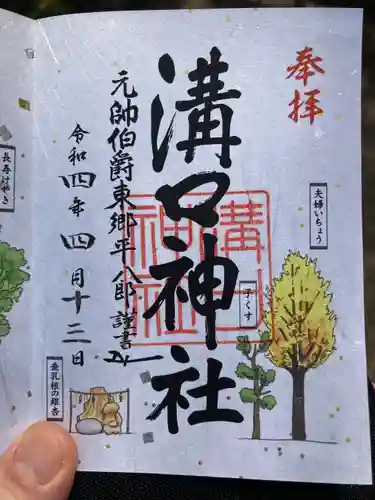 奉拝
溝口神社
溝口
神社
元帥伯爵東郷平八郎謹書
令和四年四月十三日
夫婦いちょう
子くす
垂乳根の銀杏
長寿けやき